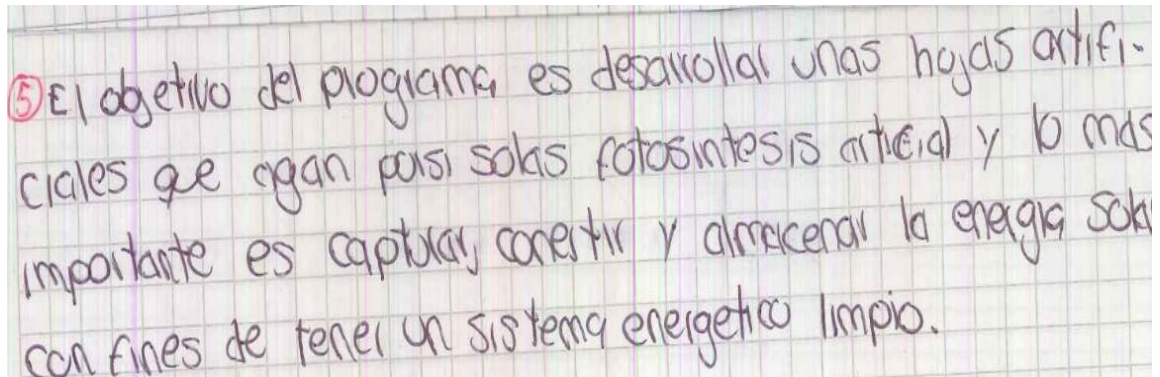 ⑤ El objetivo del programa es desarrollar unas hojas artifi-
ciales qe agan porsi solas fotosintesis artificial y lo mas
importante es capturar, conertir y almacenar la energia sola
con fines de tener un sistema energetico limpio.